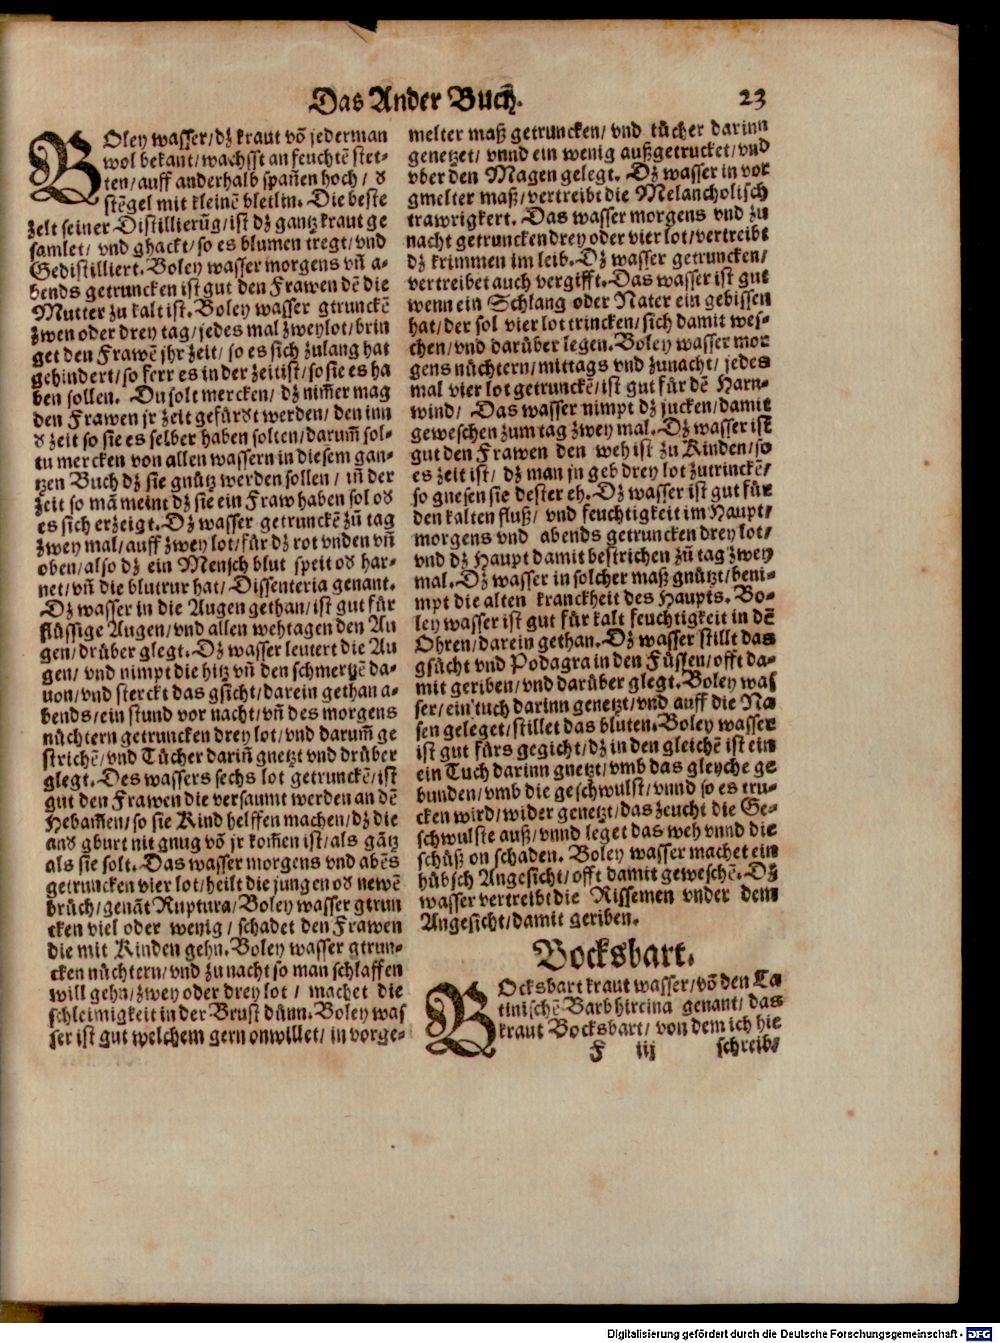 Das Ander Buch.
23
BOley wasser/dz kraut võ jederman
wol bekant/wachsst an feuchtẽ stet-
ten/auff anderhalb spañen hoch/ ꝺ
stẽgel mit kleinẽ bletlin. Die beste
zeit seiner Distillierũg/ist dz gantz kraut ge
samlet/ vnd ghackt/so es blumen tregt/vnd
Gedistilliert. Boley wasser morgens vñ a-
bends getruncken ist gut den Frawen dẽ die
Mutter zu kalt ist. Boley wasser gtrunckẽ
zwen oder drey tag/jedes mal zwey lot/brin
get den Frawẽ jhr zeit/ so es sich zulang hat
gehindert/so ferr es in der zeit ist/so sie es ha
ben sollen. Du solt mercken/ dz nim̃er mag
den Frawen jr zeit gefürꝺt werden/ den inn
ꝺ zeit so sie es selber haben solten/darum̃ sol-
tu mercken von allen wassern in diesem gan-
tzen Buch dz sie gnütz werden sollen/ iñ der
zeit so mã meint dz sie ein Fraw haben sol oꝺ
es sich erzeigt. Dz wasser getrunckẽ zũ tag
zwey mal/auff zwey lot/für dz rot vnden vñ
oben/also dz ein Mensch blut speit oꝺ har-
net/vñ die blutrur hat/ Dissenteria genant.
Dz wasser in die Augen gethan/ist gut für
flüssige Augen/vnd allen wehtagen den Au
gen/drüber glegt. Dz wasser leutert die Au
gen/ vnd nimpt die hitz vñ den schmertzẽ da-
uon/vnd sterckt das gsicht/darein gethan a-
bends/ein stund vor nacht/vñ des morgens
nüchtern getruncken drey lot/vnd darum̃ ge
strichẽ/vnd Tücher dariñ gnetzt vnd drüber
glegt. Des wassers sechs lot getrunckẽ/ist
gut den Frawen die versaumt werden an dẽ
Hebam̃en/so sie Kind helffen machen/dz die
and gburt nit gnug võ jr kom̃en ist/als gãtz
als sie solt. Das wasser morgens vnd abẽs
getruncken vier lot/heilt die jungen oꝺ newẽ
brüch/genãt Ruptura/Boley wasser gtrun
cken viel oder wenig/ schadet den Frawen
die mit Kinden gehn. Boley wasser gtrun-
cken nüchtern/vnd zu nacht so man schlaffen
will gehn/zwey oder drey lot/ machet die
schleimigkeit in der Brust dünn. Boley was
ser ist gut welchem gern onwillet/in vorge-
melter maß getruncken/ vnd tücher darinn
genetzet/ vnnd ein wenig außgetrucket/vnd
vber den Magen gelegt. Dz wasser in vor
gmelter maß/vertreibt die Melancholisch
trawrigkert. Das wasser morgens vnd zu
nacht getruncken drey oder vier lot/vertreibt
dz krimmen im leib. Dz wasser getruncken/
vertreibet auch vergifft. Das wasser ist gut
wenn ein Schlang oder Nater ein gebissen
hat/der sol vier lot trincken/sich damit wes-
chen/vnd darüber legen. Boley wasser mor
gens nüchtern/mittags vnd zunacht/ jedes
mal vier lot getrunckẽ/ist gut für dẽ Harn-
wind/ Das wasser nimpt dz jucken/damit
geweschen zum tag zwey mal. Dz wasser ist
gut den Frawen den weh ist zu Kinden/so
es zeit ist/ dz man jn geb drey lot zutrinckẽ/
so gnesen sie dester eh. Dz wasser ist gut für
den kalten fluß/ vnd feuchtigkeit im Haupt/
morgens vnd abends getruncken drey lot/
vnd dz Haupt damit bestrichen zũ tag zwey
mal. Dz wasser in solcher maß gnützt/beni-
mpt die alten kranckheit des Haupts. Bo-
ley wasser ist gut für kalt feuchtigkeit in dẽ
Ohren/darein gethan. Dz wasser stillt das
gsücht vnd Podagra in den Füssen/offt da-
mit geriben/vnd darüber glegt. Boley was
ser/ein tuch darinn genetzt/vnd auff die Na
sen geleget/stillet das bluten. Boley wasser
ist gut fürs gegicht/dz in den gleichẽ ist ein
ein Tuch darinn gnetzt/vmb das gleyche ge
bunden/vmb die geschwulst/vnnd so es tru-
cken wird/wider genetzt/das zeucht die Ge-
schwulste auß/vnnd leget das weh vnnd die
schüß on schaden. Boley wasser machet ein
hübsch Angesicht/offt damit geweschẽ. Dz
wasser vertreibt die Rissemen vnder dem
Angesicht/damit geriben.
Bocksbart.
BOcksbart kraut wasser/võ den La
tinischẽ Barbhircina genant/das
kraut Bocksbart/ von dem ich hie
F iij
schreib/
Digitalisierung gefördert durch die Deutsche Forschungsgemeinschaft - DFG